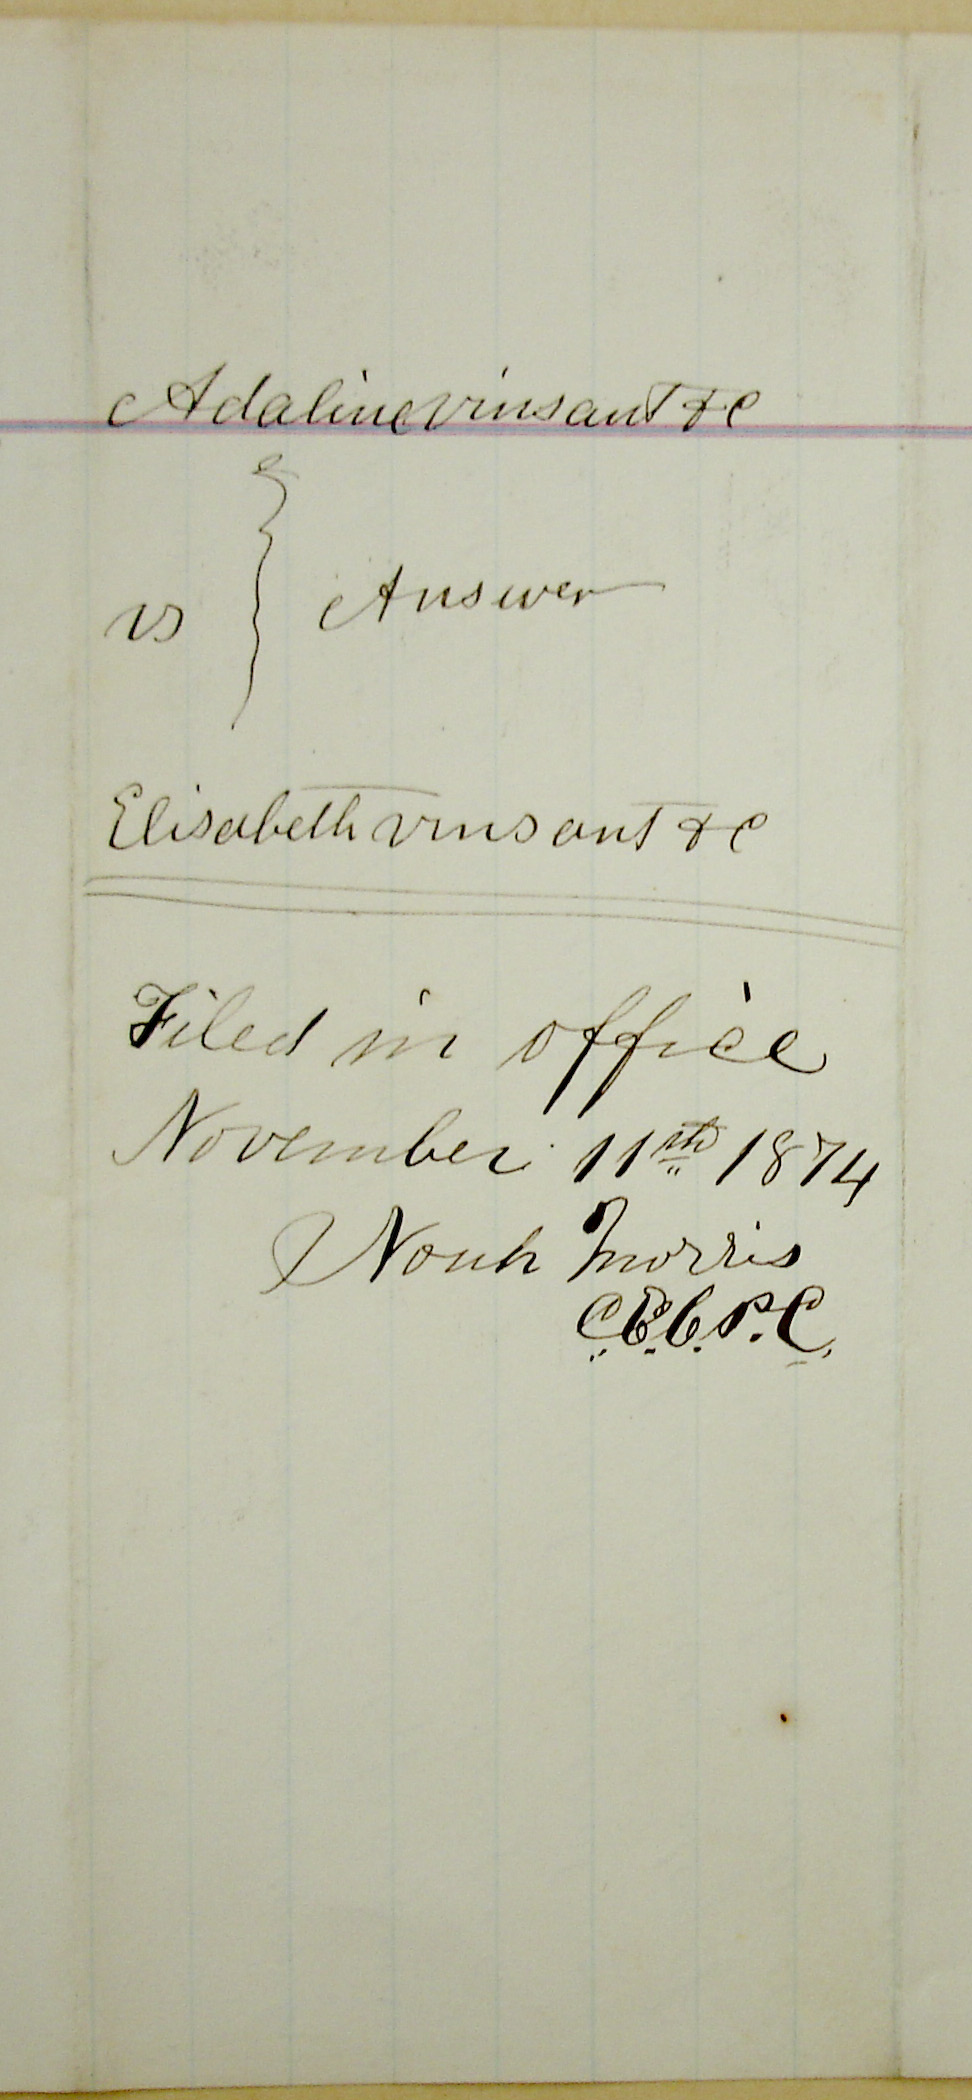 Adaline vinsant &c
vs } Answer
Elisabeth vinsant &c
Filed in office
November 11th 1874
Noah Morris
C.C.C.P.C.